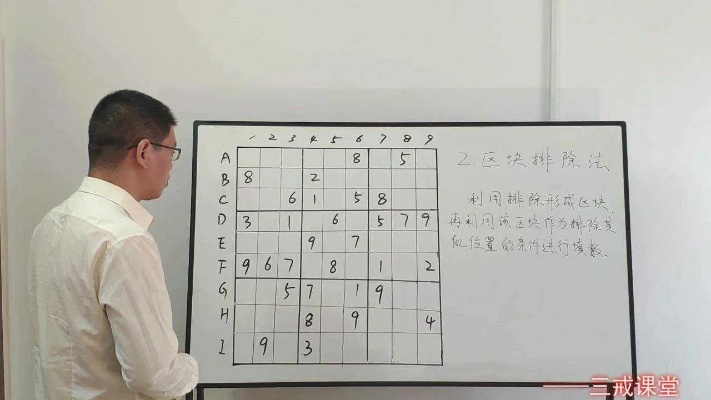 1 2 3 4 5 6 7 8 9
A 8 5
B 8 2
C 6 1 5 8
D 3 1 6 5 7 9
E 9 7
F 9 6 7 8 1 2
G 5 7 1 9
H 8 9 4
I 9 3
2.区块排除法
利用排除形成区块,
再利用该区块作为排除其
他位置的条件进行填数.
——三戒课堂